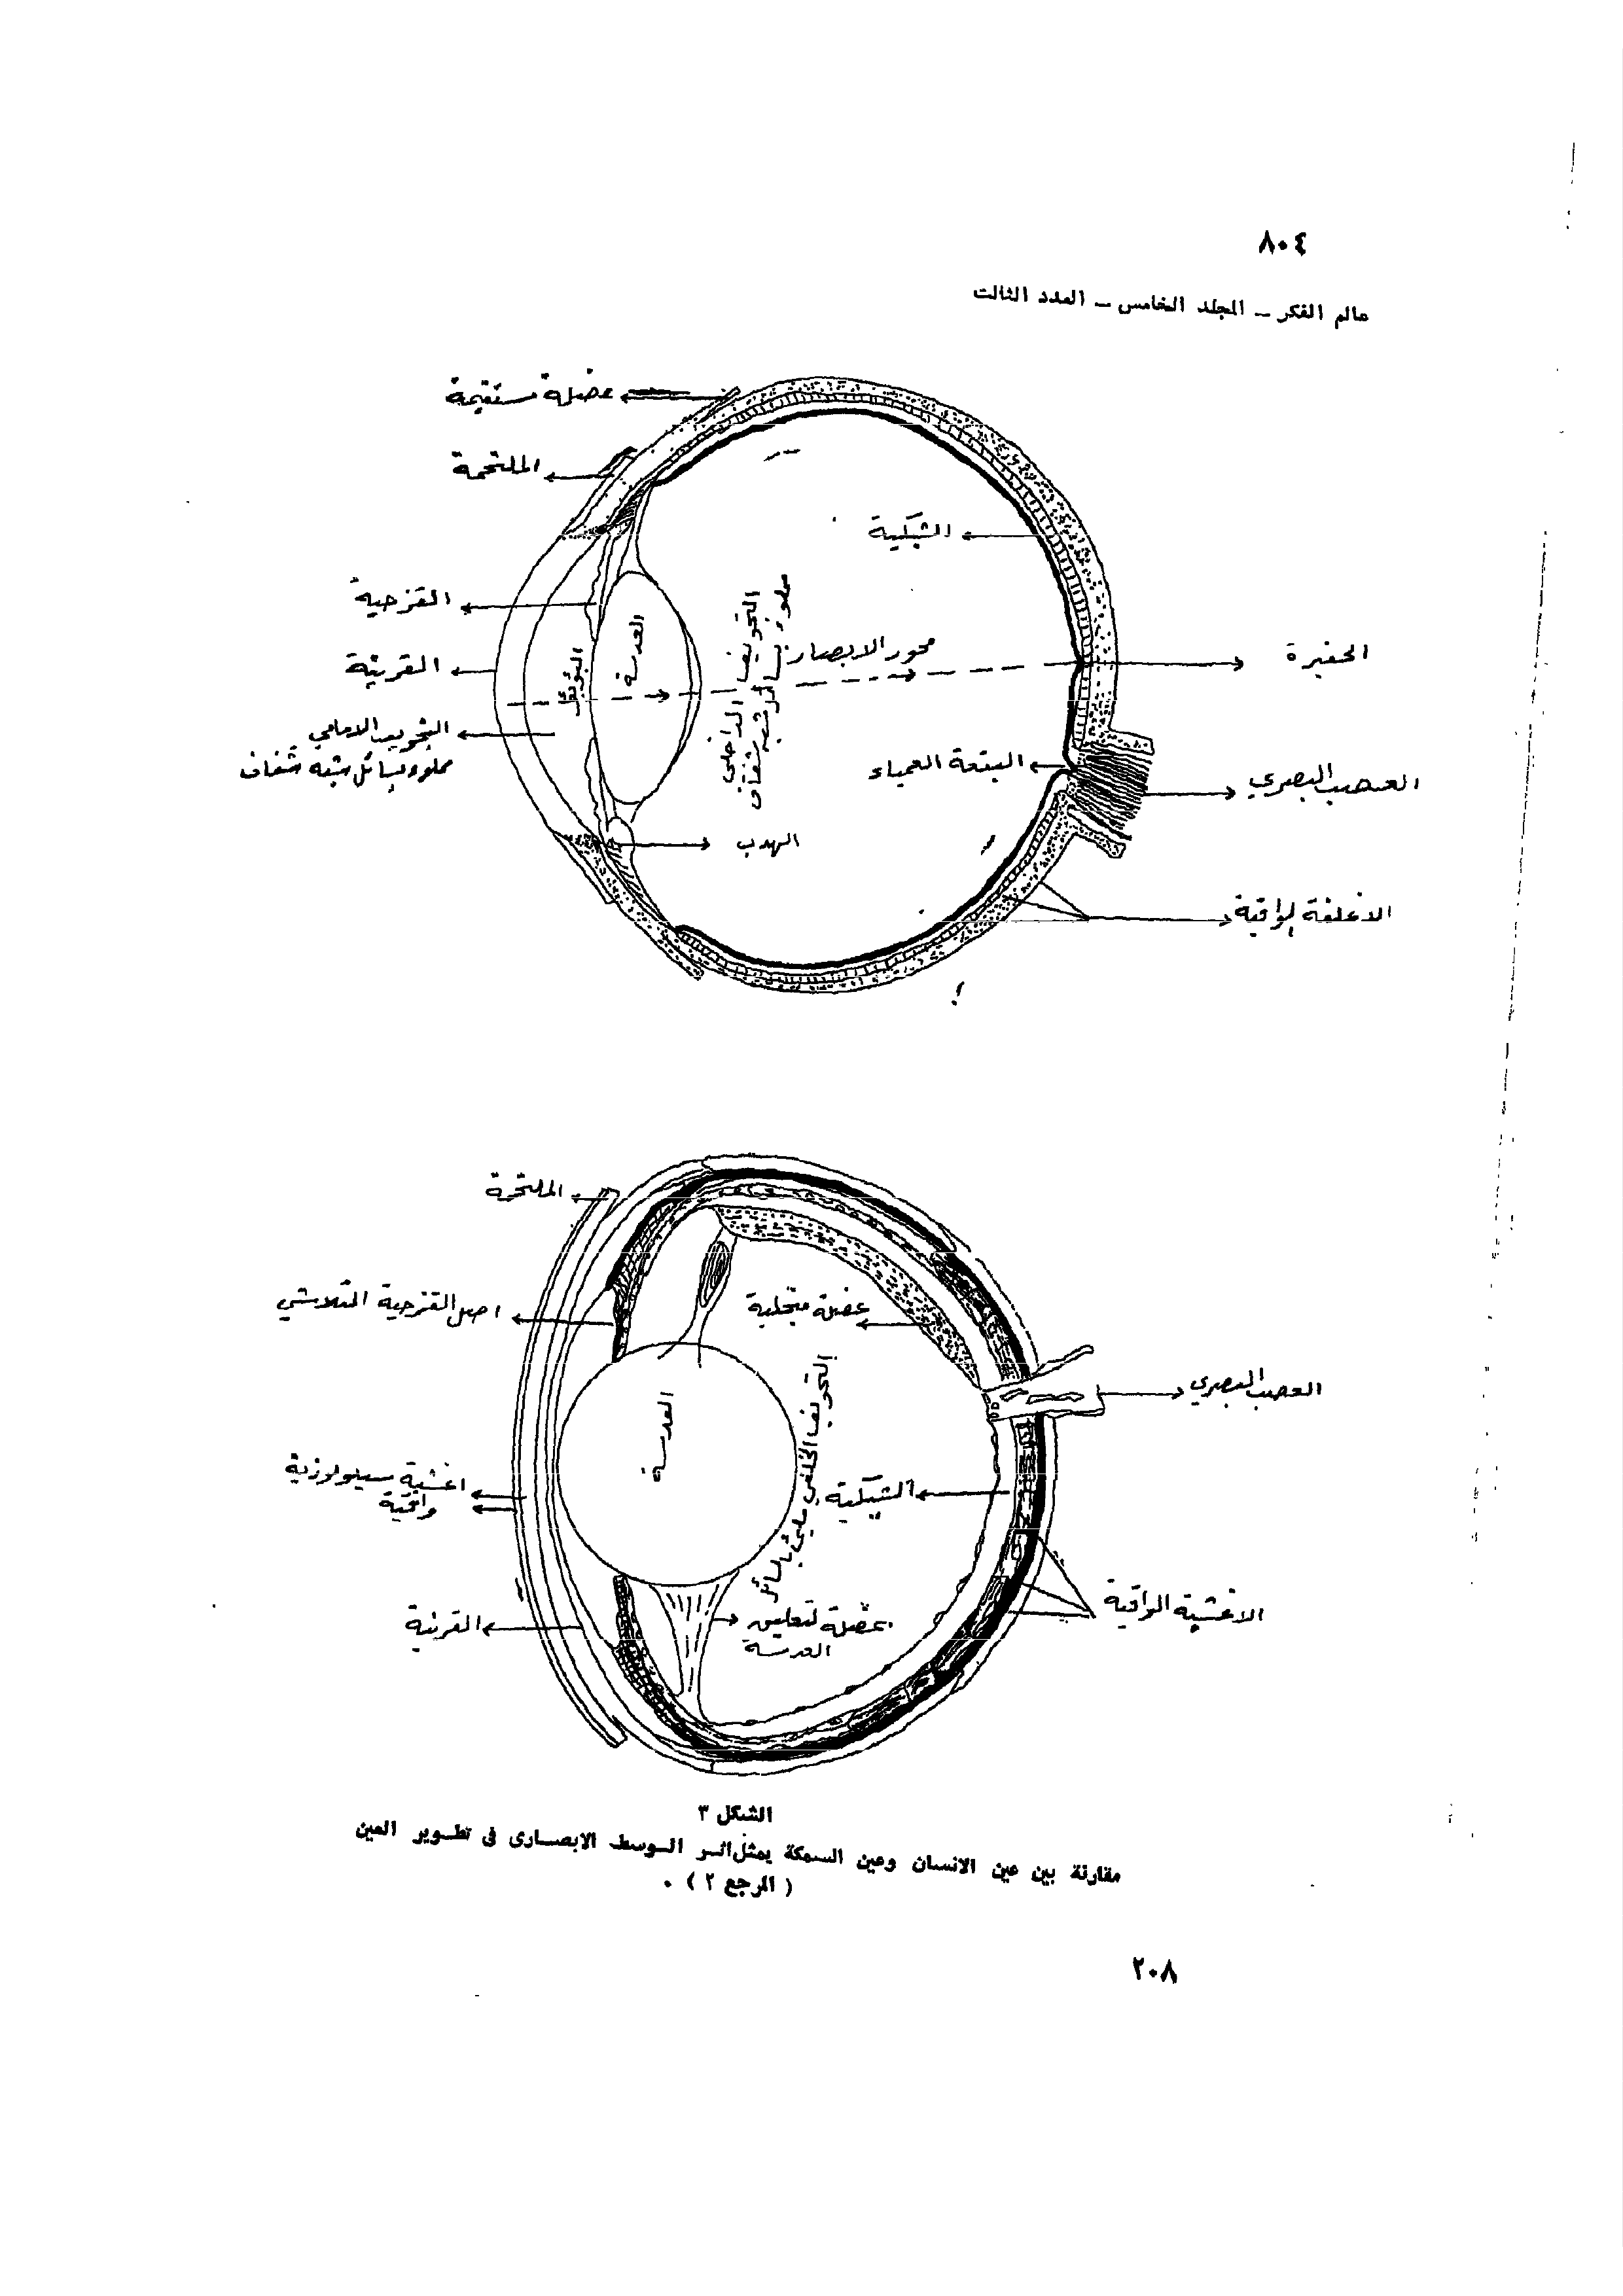 ٨٠٤
عالم الفكر ــ المجلد الخامس ــ العدد الثالث
عضلة مستقيمة
الملتحمة
الشبكية
القزحية
العدسة
البؤبؤ
التجويف الداخلي
مملوء بسائل شبه شفاف
محور الابصار
الحفيرة
القرنية
التجويف الامامي
مملوء بسائل شبه شفاف
البقعة العمياء
العصب البصري
الهدب
الاغلفة الواقية
الملتحمة
اصل القزحية المتلاشي
عضلة منجلية
العصب البصري
العدسة
التجويف الخلفي مليئ بالسائل
الشبكية
اغشية سيلولوزية
واقية
الاغشية الواقية
القرنية
عضلة لتعليق
العدسة
الشكل ٣
مقارنة بين عين الانسان وعين السمكة يمثل اثر الوسط الابصارى فى تطوير العين
( المرجع ٢ ) .
٢٠٨